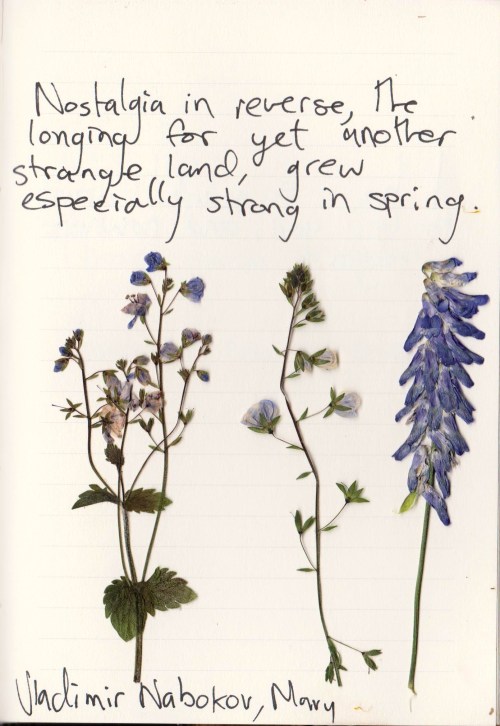 Nostalgia in reverse, the
longing for yet another
strange land, grew
especially strong in spring.
Vladimir Nabokov, Mary